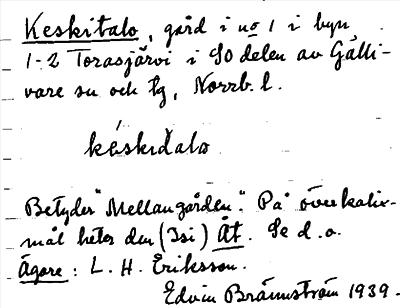 Keskitalo, gård i no 1 i byn
1-2 Torasjärvi i SO delen av Gälli-
vare sn och tg, Norrb. l.
kèskıtalo
Betyder "Mellangården". På överkalix-
mål heter den (Isi) Åt. Se d.o.
Ägare: L. H. Eriksson.
Edvin Brännström 1939.